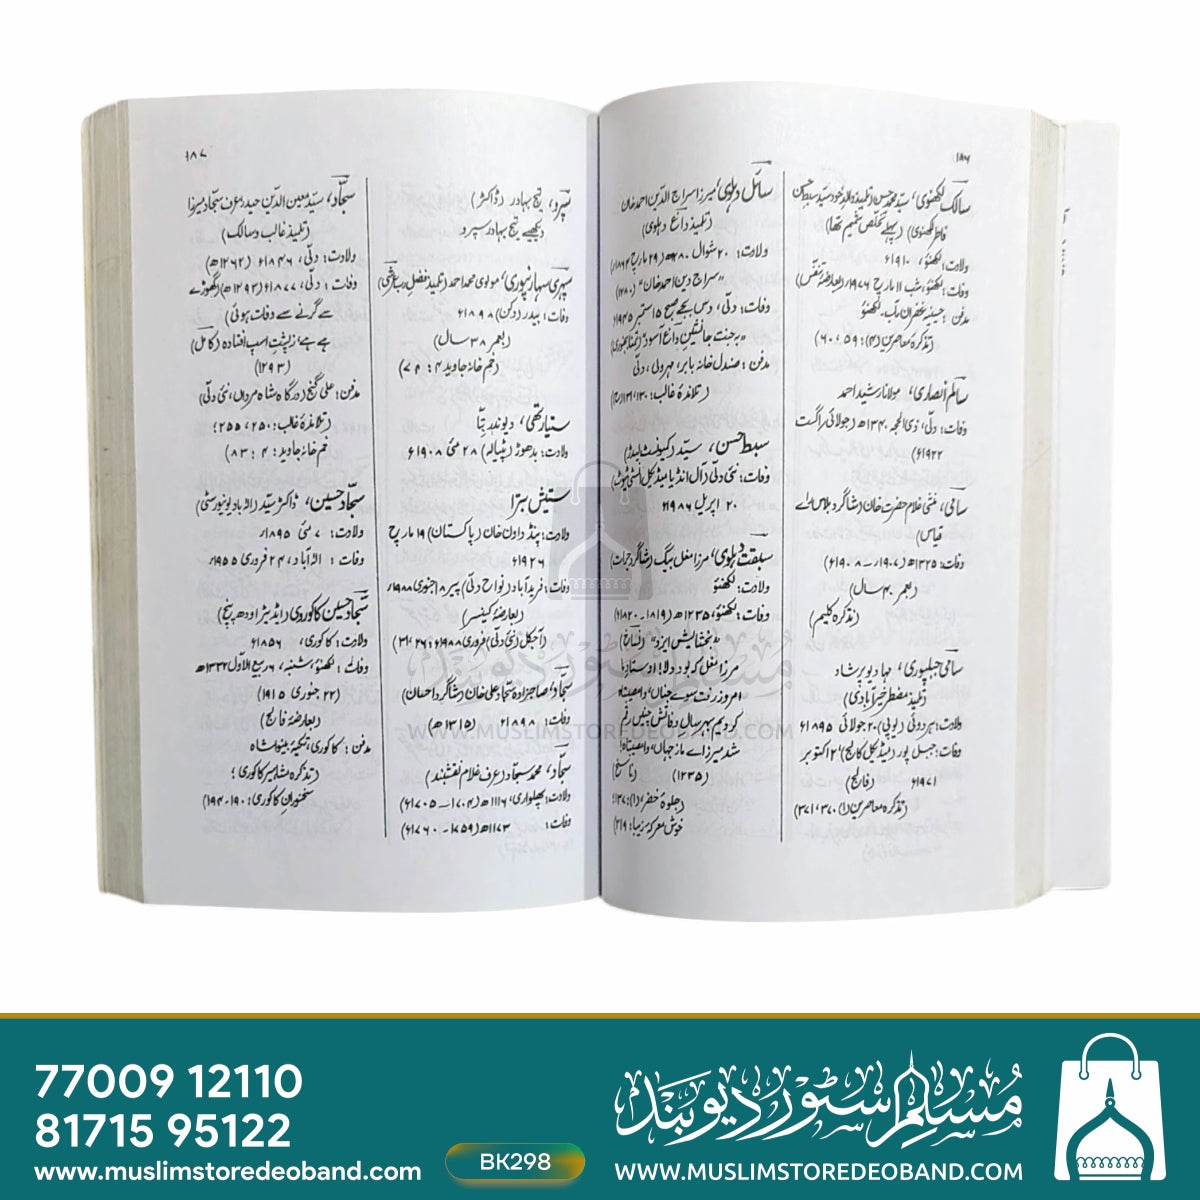 ۱۸۶
سالک لکھنوی، سیّد محمد حسن (تلمیذ والد خود سیّد سبط حسن
فاطر لکھنوی) (پہلے تخلص شمیم تھا)
ولادت: لکھنؤ، ۱۹۱۰ء
وفات: لکھنؤ، شب ۱۱ مارچ ۱۹۷۶ (بعارضۂ تنفس)
مدفن: حسینیہ غفران مآب، لکھنؤ
(تذکرہ معاصرین (۴): ۵۹، ۶۰)
سالم انصاری، مولانا رشید احمد
وفات: دلّی، ذی الحجہ ۱۳۴۰ھ (جولائی/اگست
۱۹۲۲ء)
سامی، منشی غلام حضرت خان (شاگرد بلاس رائے
قیاس)
وفات: ۱۳۲۵ھ (۱۹۰۷ - ۱۹۰۸ء)
(بعمر ۴۰ سال)
(تذکرہ کلیم)
سامی جبلپوری، مہادیو پرشاد
(تلمیذ مضطر خیرآبادی)
ولادت: ہردوئی (یوپی) ۲۰ جولائی ۱۸۹۵ء
وفات: جبل پور (میڈیکل کالج) ۲ اکتوبر
۱۹۷۱ء (فالج)
(تذکرہ معاصرین (۱): ۳۷۰، ۳۷۱)
سائل دہلوی، میرزا سراج الدّین احمد خان
(تلمیذ داغ دہلوی)
ولادت: ۲۰ شوال ۱۲۸۰ھ (۲۹ مارچ ۱۸۶۴ء)
"سراج دین احمد خان" (۱۲۸۰)
وفات: دلّی، دس بجے صبح ۱۵ ستمبر ۱۹۴۵ء
"بہ جنت جانشین داغ آسود"
مدفن: صندل خانہ بابر، مہرولی، دلّی
(تلامذۂ غالب: ۱۳۰، ۱۳۱)
سبط حسن، سیّد (کمیونسٹ لیڈر)
وفات: نئی دلّی (آل انڈیا میڈیکل انسٹی ٹیوٹ)
۲۰ اپریل ۱۹۸۶ء
سبقت دہلوی، مرزا مغل بیگ (شاگرد جرات)
ولادت: لکھنؤ
وفات: لکھنؤ، ۱۲۳۵ھ (۱۸۱۹ - ۱۸۲۰ء)
بد بخشایش ایزد" (نساخ)
مرزا مغل کہ بود دلا! اوستادِ ما
امروز رفت سوے جناں، وامصیبتاہ
کردیم بہر سال وفاتش چنیں رقم
شد میرزاے ما ز جہاں، وامصیبتاہ!
(۱۲۳۵) (ناسخ)
(جلوۂ خضر، (۱): ۱۳۷؛
خوش معرکۂ زیبا: ۲۱۹)
۱۸۷
سپرو، تیج بہادر (ڈاکٹر)
دیکھیے تیج بہادر سپرو
سپہری سہارنپوری، مولوی محمد احمد
وفات: بیدر (دکن) ۱۸۹۸ء
(بعمر ۳۸ سال)
(خم خانہ جاوید ۴: ۷۴)
ستیارتھی، دیوندر بتّا
ولادت: بدھوڑ (پٹیالہ) ۲۸ مئی ۱۹۰۸ء
ستیش بترا
ولادت: پنڈ دادن خان (پاکستان) ۱۹ مارچ
۱۹۲۶ء
وفات: فریدآباد (نواح دلّی) پیر ۱۸ جنوری ۱۹۸۸ء
(بعارضۂ کینسر)
(آجکل (نئی دلّی) فروری ۱۹۸۸ء: ۲۶-۳۱)
سجاد، صاحبزادہ سجاد علی خان (شاگرد احسان)
وفات: ۱۸۹۸ء (۱۳۱۵ھ)
سجاد، محمد سجاد (عرف غلام نقشبند)
ولادت: پھلواری، ۱۱۱۶ھ (۱۷۰۴ - ۱۷۰۵ء)
وفات: ۱۱۷۳ھ (۱۷۵۹ - ۱۷۶۰ء)
سجّاد، سیّد معین الدّین حیدر عرف سجّاد میرزا
(تلمیذ غالب و سالک)
ولادت: دلّی، ۱۸۴۶ء (۱۲۶۲ھ)
وفات: دلّی، ۱۸۷۷ء (۱۲۹۳ھ) (گھوڑے
سے گرنے سے وفات ہوئی)
ہے ہے، ز پشتِ اسپ افتادہ (کامل)
(۱۲۹۳)
مدفن: علی گنج (درگاہ شاہ مرداں، نئی دلّی)
(تلامذۂ غالب: ۲۵۰، ۲۵۵؛
خم خانہ جاوید: ۴: ۸۳)
سجّاد حسین، ڈاکٹر سیّد (الہ آباد یونیورسٹی)
ولادت: ۷ مئی ۱۸۹۵ء
وفات: الہ آباد، ۲۴ فروری ۱۹۵۵ء
سجّاد حسین کاکوروی (ایڈیٹر اودھ پنچ)
ولادت: کاکوری، ۱۸۵۶ء
وفات: لکھنؤ، شنبہ، ۶ ربیع الاوّل ۱۳۳۲ھ
(۲۲ جنوری ۱۹۱۵)
(بعارضۂ فالج)
مدفن: کاکوری، تکیۂ بینوا شاہ
(تذکرہ مشاہیر کاکوری؛
سخنوران کاکوری: ۱۹۰-۱۹۴)
مسلم سٹور دیوبند
WWW.MUSLIMSTOREDEOBAND.COM
77009 12110
81715 95122
www.muslimstoredeoband.com
BK298
مسلم سٹور دیوبند
WWW.MUSLIMSTOREDEOBAND.COM